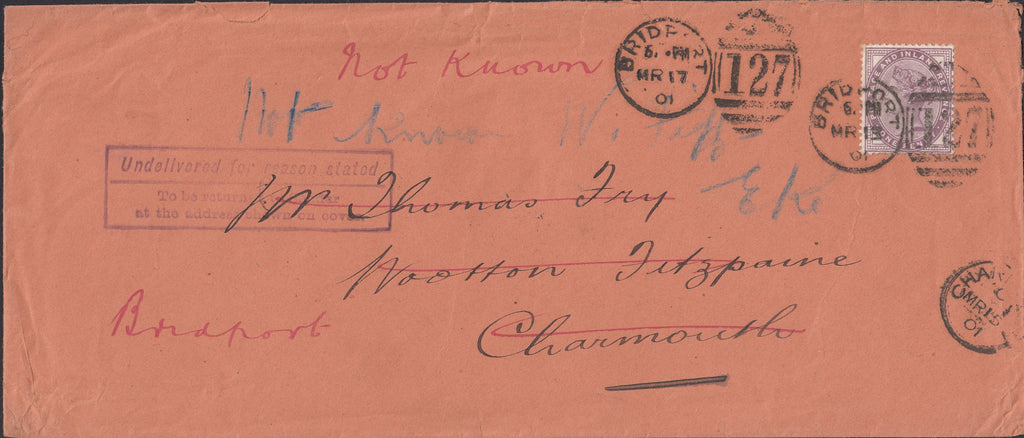 Not Known
BRIDPORT
MR 17
01
127
BRIDPORT
MR 13
01
127
Not Known
Undelivered for reason stated
To be return
at the address shown on cover
Mr Thomas Fry
Wootton Fitzpaine
Charmouth
Bridport
CHAR
MR 15
01